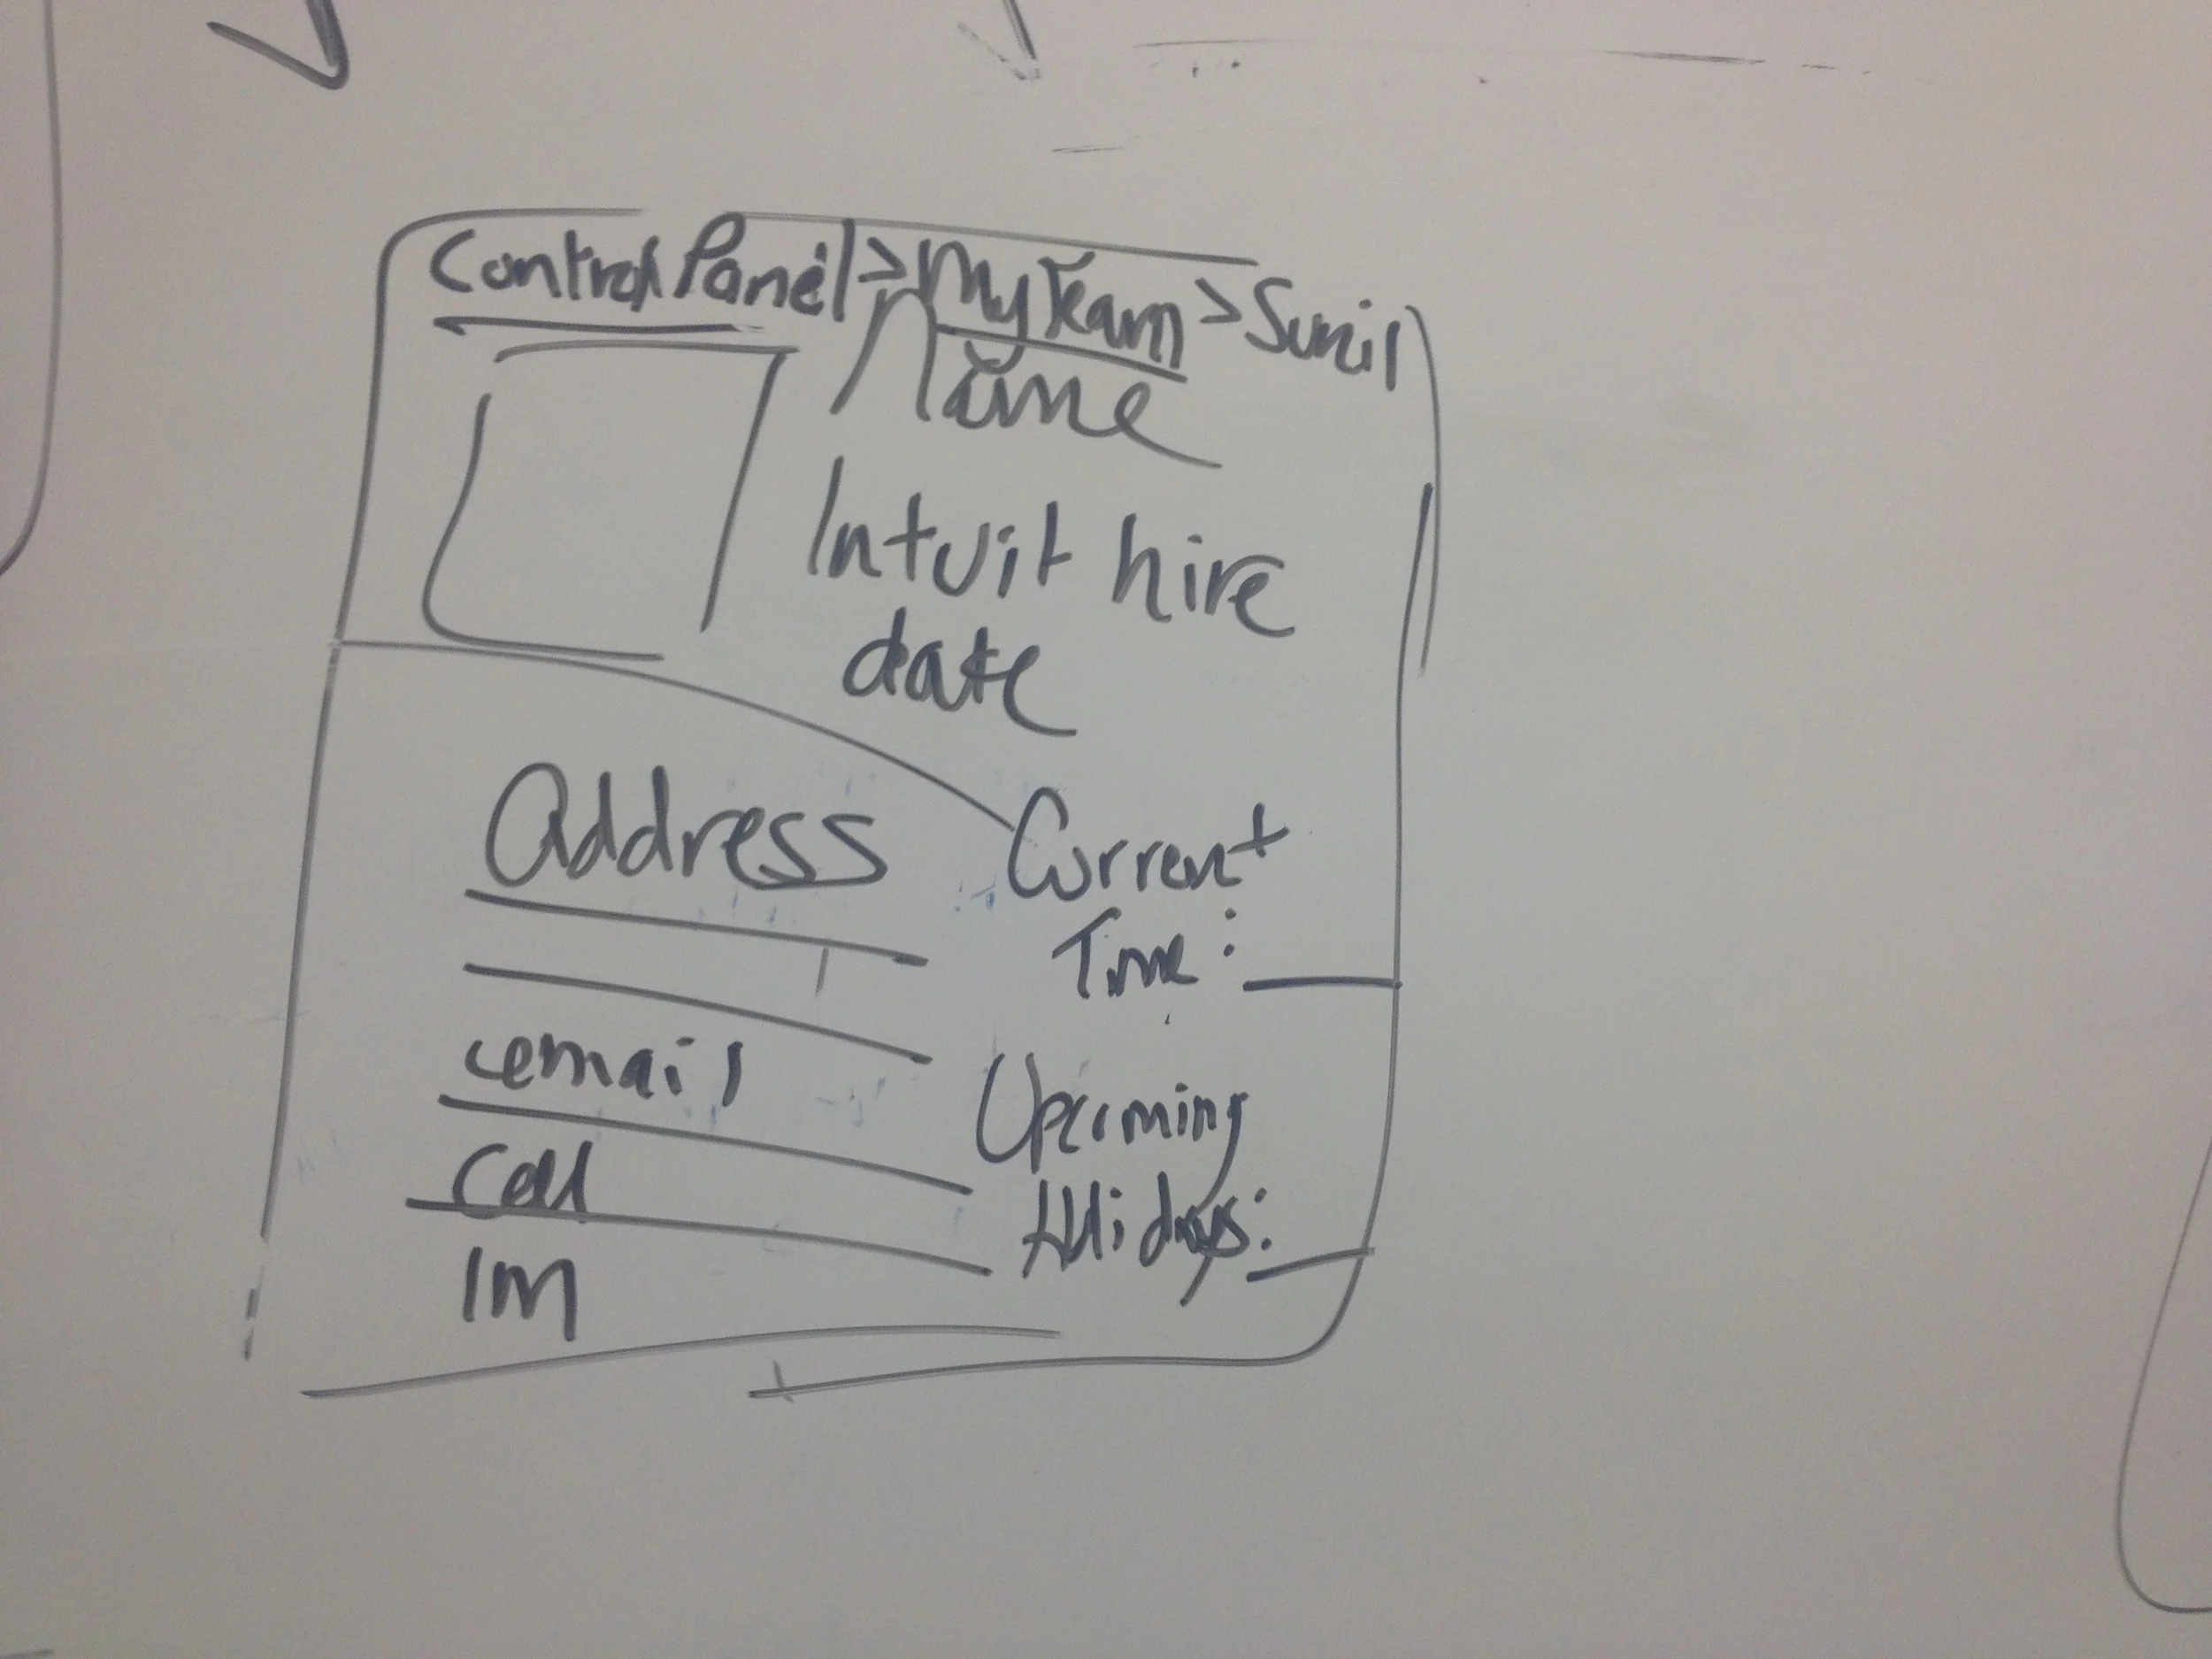 Control Panel > My Team > Sunil
Name
Intuit hire
date
Address
Current
Time:
email
Upcoming
Cell
Holidays:
IM